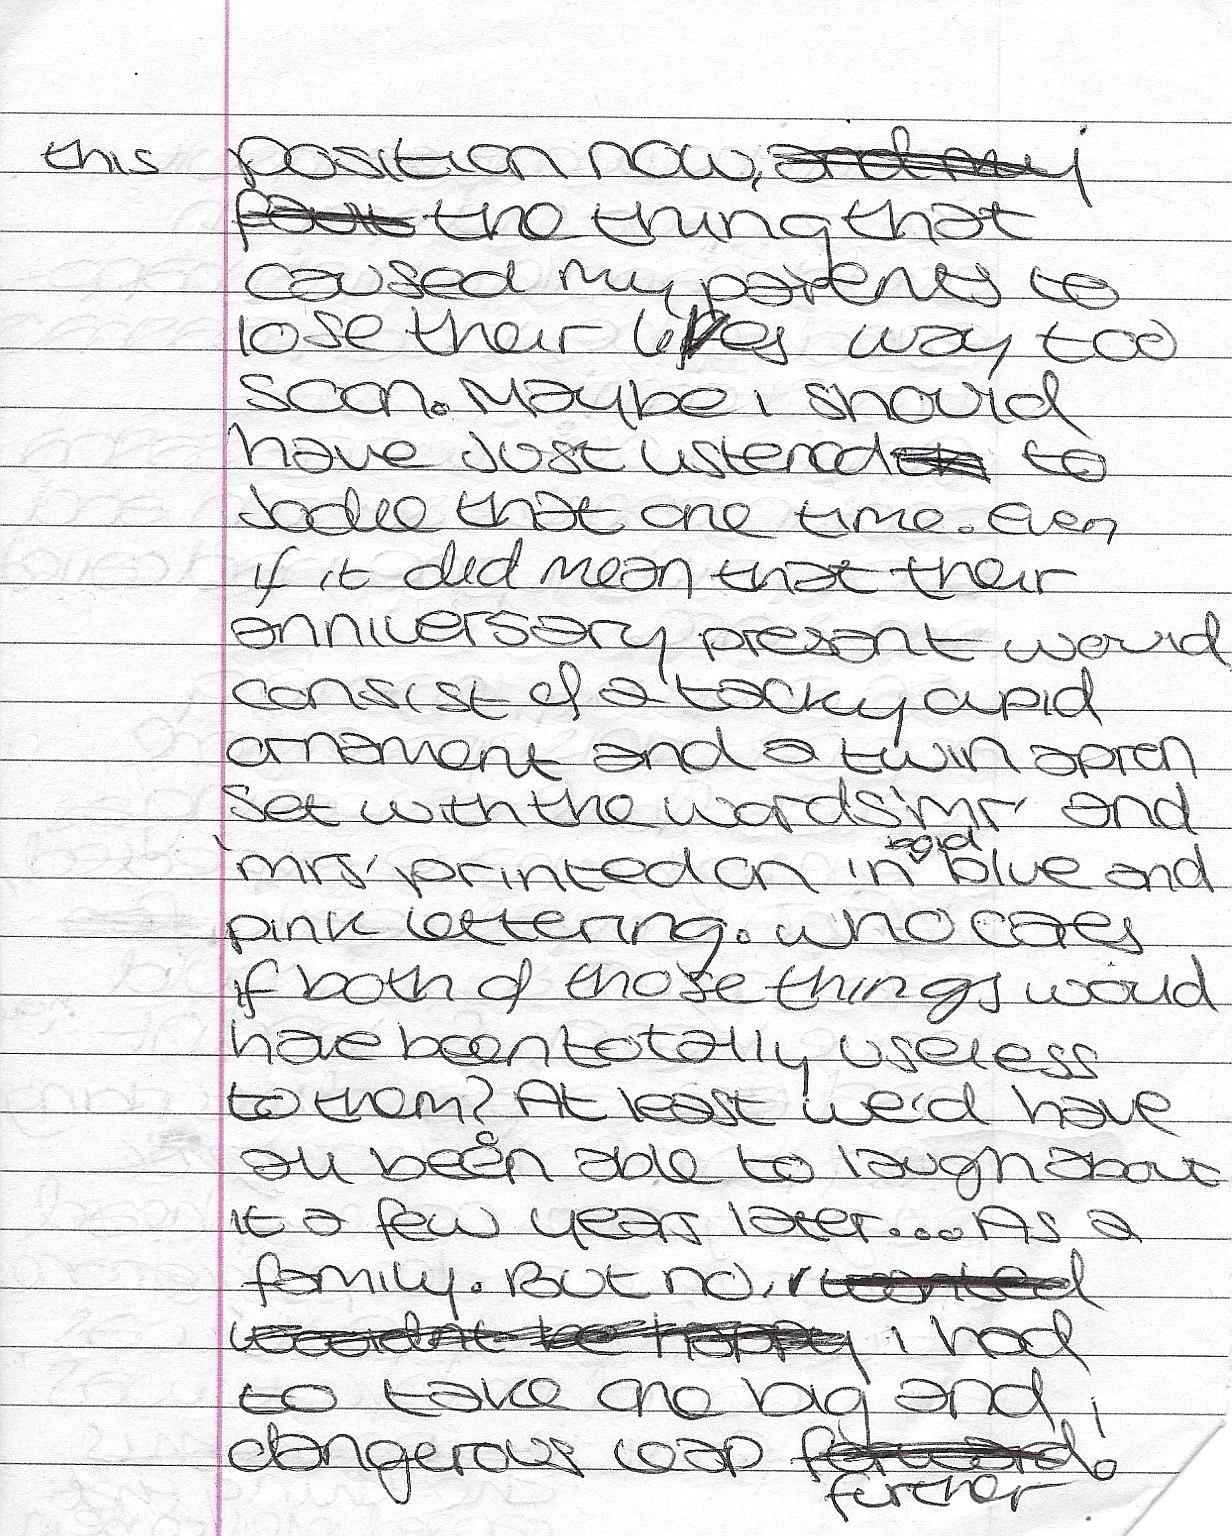 this position now, ~~and my~~
~~fault~~ the thing that
caused my parents to
lose their lives way too
soon. Maybe i should
have just listened to
Jodie that one time. Even
if it did mean that their
anniversary present would
consist of a tacky cupid
ornament and a twin apron
set with the words 'mr' and
'mrs' printed on in bold blue and
pink lettering. who caes
if both of those things would
have been totally useless
to them? At least we'd have
all been able to laugh about
it a few years later... As a
family. But no, i ~~wanted~~
~~wouldn't be happy~~ i had
to take one big and
dangerous leap ~~forward~~.
further